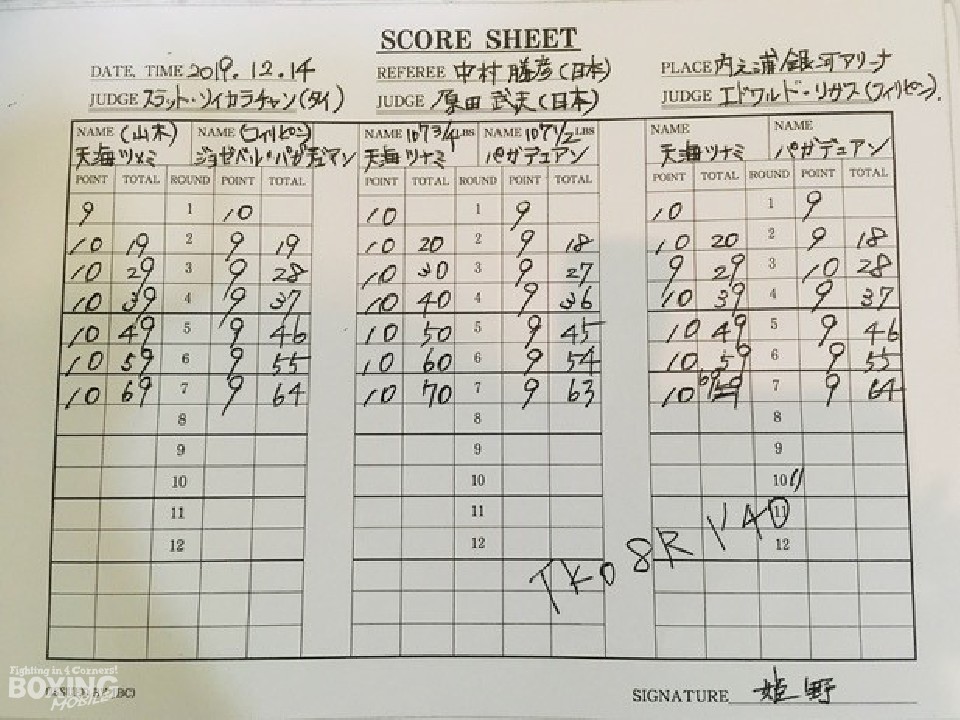 SCORE SHEET
DATE, TIME 2019.12.14 REFEREE 中村勝彦(日本) PLACE 内之浦銀河アリーナ
JUDGE スラット・ソイカラチャン(タイ) JUDGE 原田武夫(日本) JUDGE エドワルド・リガス(フィリピン).
NAME (山木) NAME (フィリピン) NAME 107 3/4 LBS NAME 107 1/2 LBS NAME NAME
天海ツナミ ジョゼベル・パガデュアン 天海ツナミ パガデュアン 天海ツナミ パガデュアン
POINT TOTAL ROUND POINT TOTAL POINT TOTAL ROUND POINT TOTAL POINT TOTAL ROUND POINT TOTAL
9 1 10 10 1 9 10 1 9
10 19 2 9 19 10 20 2 9 18 10 20 2 9 18
10 29 3 9 28 10 30 3 9 27 9 29 3 10 28
10 39 4 9 37 10 40 4 9 36 10 39 4 9 37
10 49 5 9 46 10 50 5 9 45 10 49 5 9 46
10 59 6 9 55 10 60 6 9 54 10 59 6 9 55
10 69 7 9 64 10 70 7 9 63 10 69 7 9 64
8 8 8
9 9 9
10 10 10
11 11 11
12 12 12
TKO 8R 1'40"
Fighting in 4 Corners!
BOXING
MOBILE
SIGNATURE 姫野